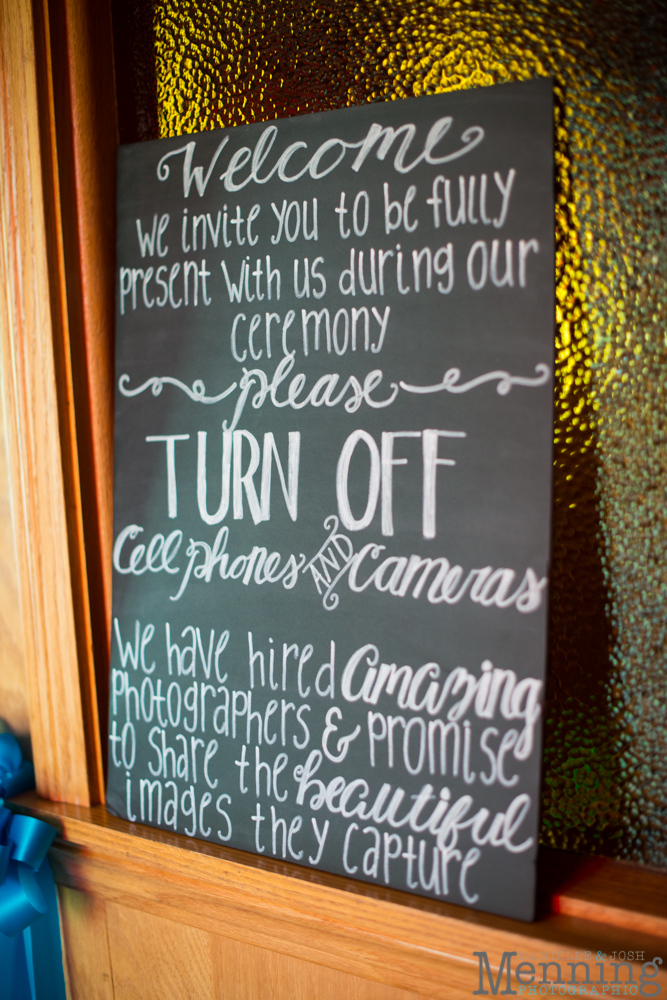 Welcome
we invite you to be fully
present with us during our
ceremony
please
TURN OFF
Cell phones AND Cameras
We have hired amazing
photographers & promise
to share the beautiful
images they capture
& JOSH
Menning
PHOTOGRAPHIC